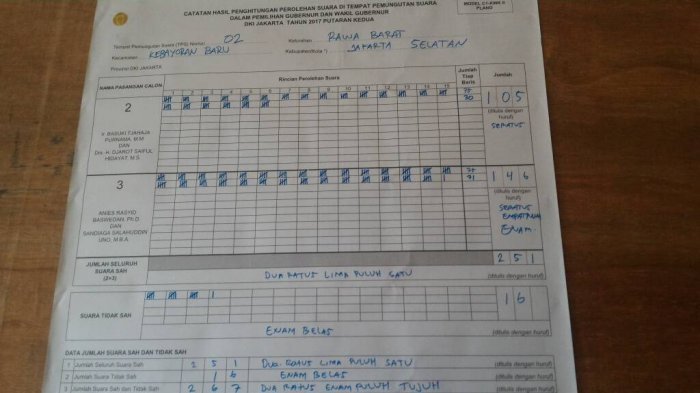 MODEL C1-KWK
PLANO
CATATAN HASIL PENGHITUNGAN PEROLEHAN SUARA DI TEMPAT PEMUNGUTAN SUARA
DALAM PEMILIHAN GUBERNUR DAN WAKIL GUBERNUR
DKI JAKARTA TAHUN 2017 PUTARAN KEDUA
Tempat Pemungutan Suara (TPS) Nomor 02 Kelurahan RAWA BARAT
Kecamatan KEBAYORAN BARU JAKARTA SELATAN
Provinsi DKI JAKARTA
NAMA PASANGAN CALON Rincian Perolehan Suara Jumlah Tiap Baris Jumlah
1 2 3 4 5 6 7 8 9 10 11 12 13 14 15
2 75 1 0 5
30
(ditulis dengan huruf)
Ir. BASUKI TJAHAJA
PURNAMA, M.M
DAN
Drs. H. DJAROT SAIFUL
HIDAYAT, M.S.
3 1 4 6
71
(ditulis dengan huruf)
ANIES RASYID
BASWEDAN, Ph.D.
DAN
SANDIAGA SALAHUDDIN
UNO, M.B.A.
ENAM
JUMLAH SELURUH
SUARA SAH
(2+3)
2 5 1
DUA RATUS LIMA PULUH SATU (ditulis dengan huruf)
SUARA TIDAK SAH 16
ENAM BELAS (ditulis dengan huruf)
DATA JUMLAH SUARA SAH DAN TIDAK SAH
1 Jumlah Seluruh Suara Sah 2 5 1 DUA RATUS LIMA PULUH SATU (ditulis dengan huruf)
2 Jumlah Suara Tidak Sah 1 6 ENAM BELAS (ditulis dengan huruf)
3 Jumlah Suara Sah dan Tidak Sah 2 6 7 DUA RATUS ENAM PULUH TUJUH (ditulis dengan huruf)